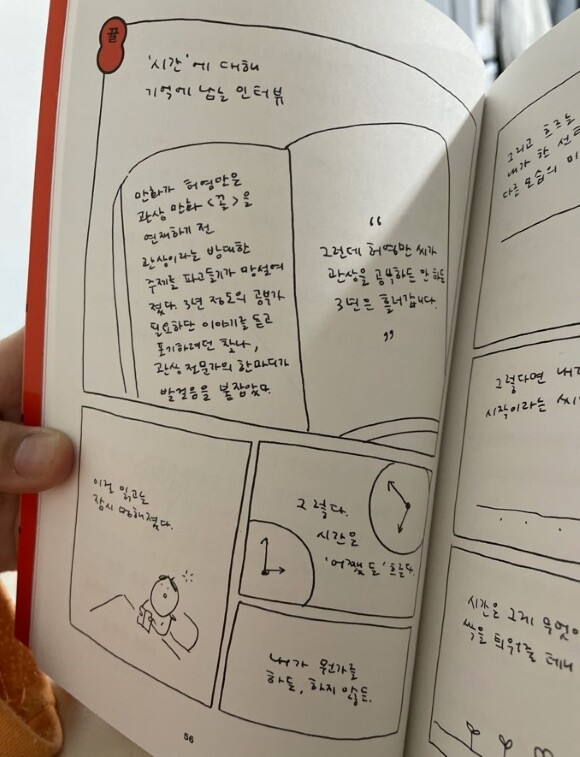 꿀
'시간'에 대해
기억에 남는 인터뷰
만화가 허영만은
관상 만화 <꼴>을
연재하기 전
관상이라는 방대한
주제를 파고들기가 망설여
졌다. 3년 정도의 공부가
필요하단 이야기를 듣고
포기하려던 찰나,
관상 전문가의 한마디가
발걸음을 붙잡았다.
“
그런데 허영만 씨가
관상을 공부하든 안 하든
3년은 흘러갑니다.
”
이걸 읽고는
잠시 멍해졌다.
그렇다.
시간은
'어쨌든' 흐른다.
내가 뭔가를
하든, 하지 않든.
56
그리고 흐르는
내가 한 선
다른 모습의 미
그렇다면 내가
시작이라는 씨
시간은 그게 무엇이
싹을 틔워줄 테니